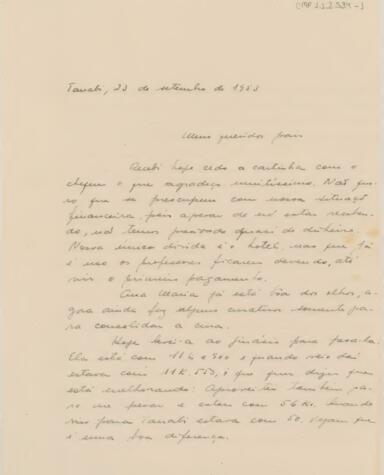 CMP 2.1.2.534-1
Tanabi, 23 de setembro de 1953
Meus queridos pais
Recebi hoje cedo a cartinha com o
cheque o que agradeço muitíssimo. Não que-
ro que se preocupem com nossa situação
financeira, pois apesar de não estar receben-
do, não temos precisado de dinheiro.
Nossa única dívida é o hotel, mas que já
é uso os professores ficarem devendo, até
vir o primeiro pagamento.
Ana Maria já está boa dos olhos, a-
gora ainda faz alguns curativos somente pa-
ra consolidar a cura.
Hoje levei-a ao ginásio para pesá-la.
Ela está com 11 k e 900 e quando veio daí
estava com 11 K. 550, o que quer dizer que
está melhorando. Aproveitei também pa-
ra me pesar e estou com 56 Ks. Quando
vim para Tanabi estava com 50. Vejam que
é uma boa diferença.